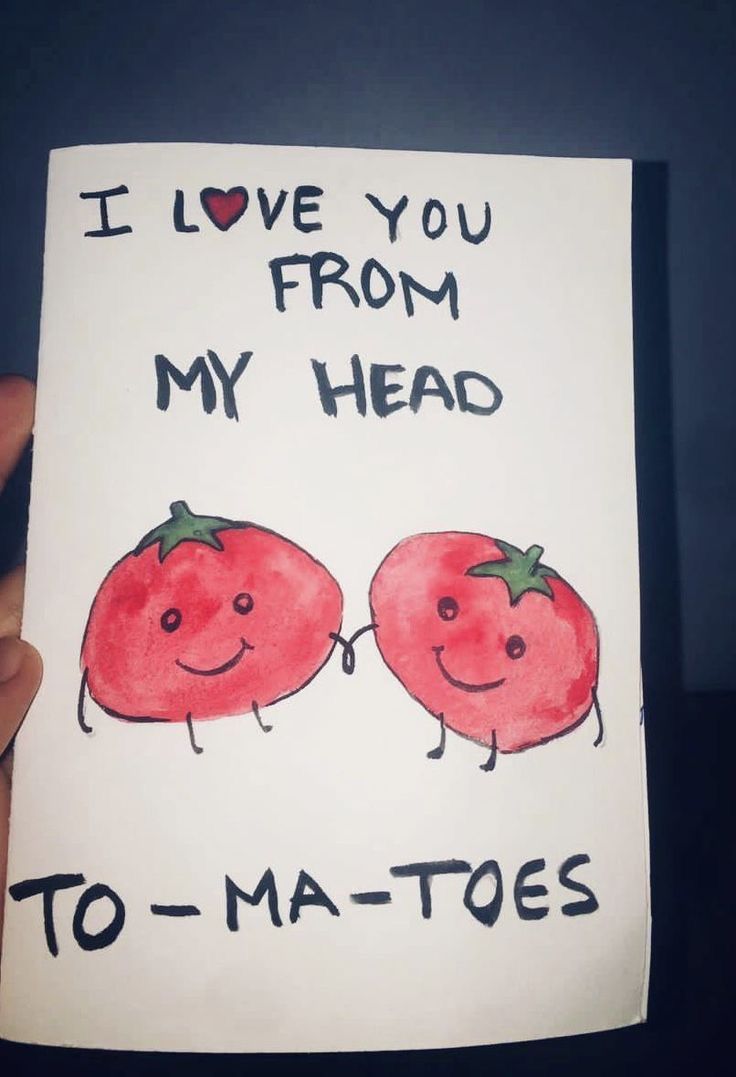 I LOVE YOU
FROM
MY HEAD
TO-MA-TOES